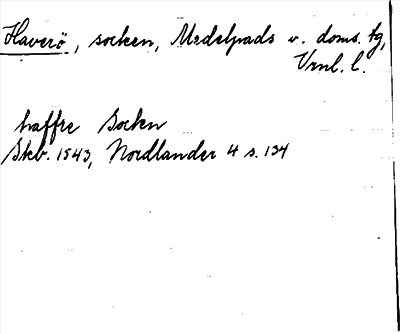 Haverö, socken, Medelpads v. doms. tg,
Vrnl. l.
haffre Sockn
Skb. 1543, Nordlander 4 s. 134